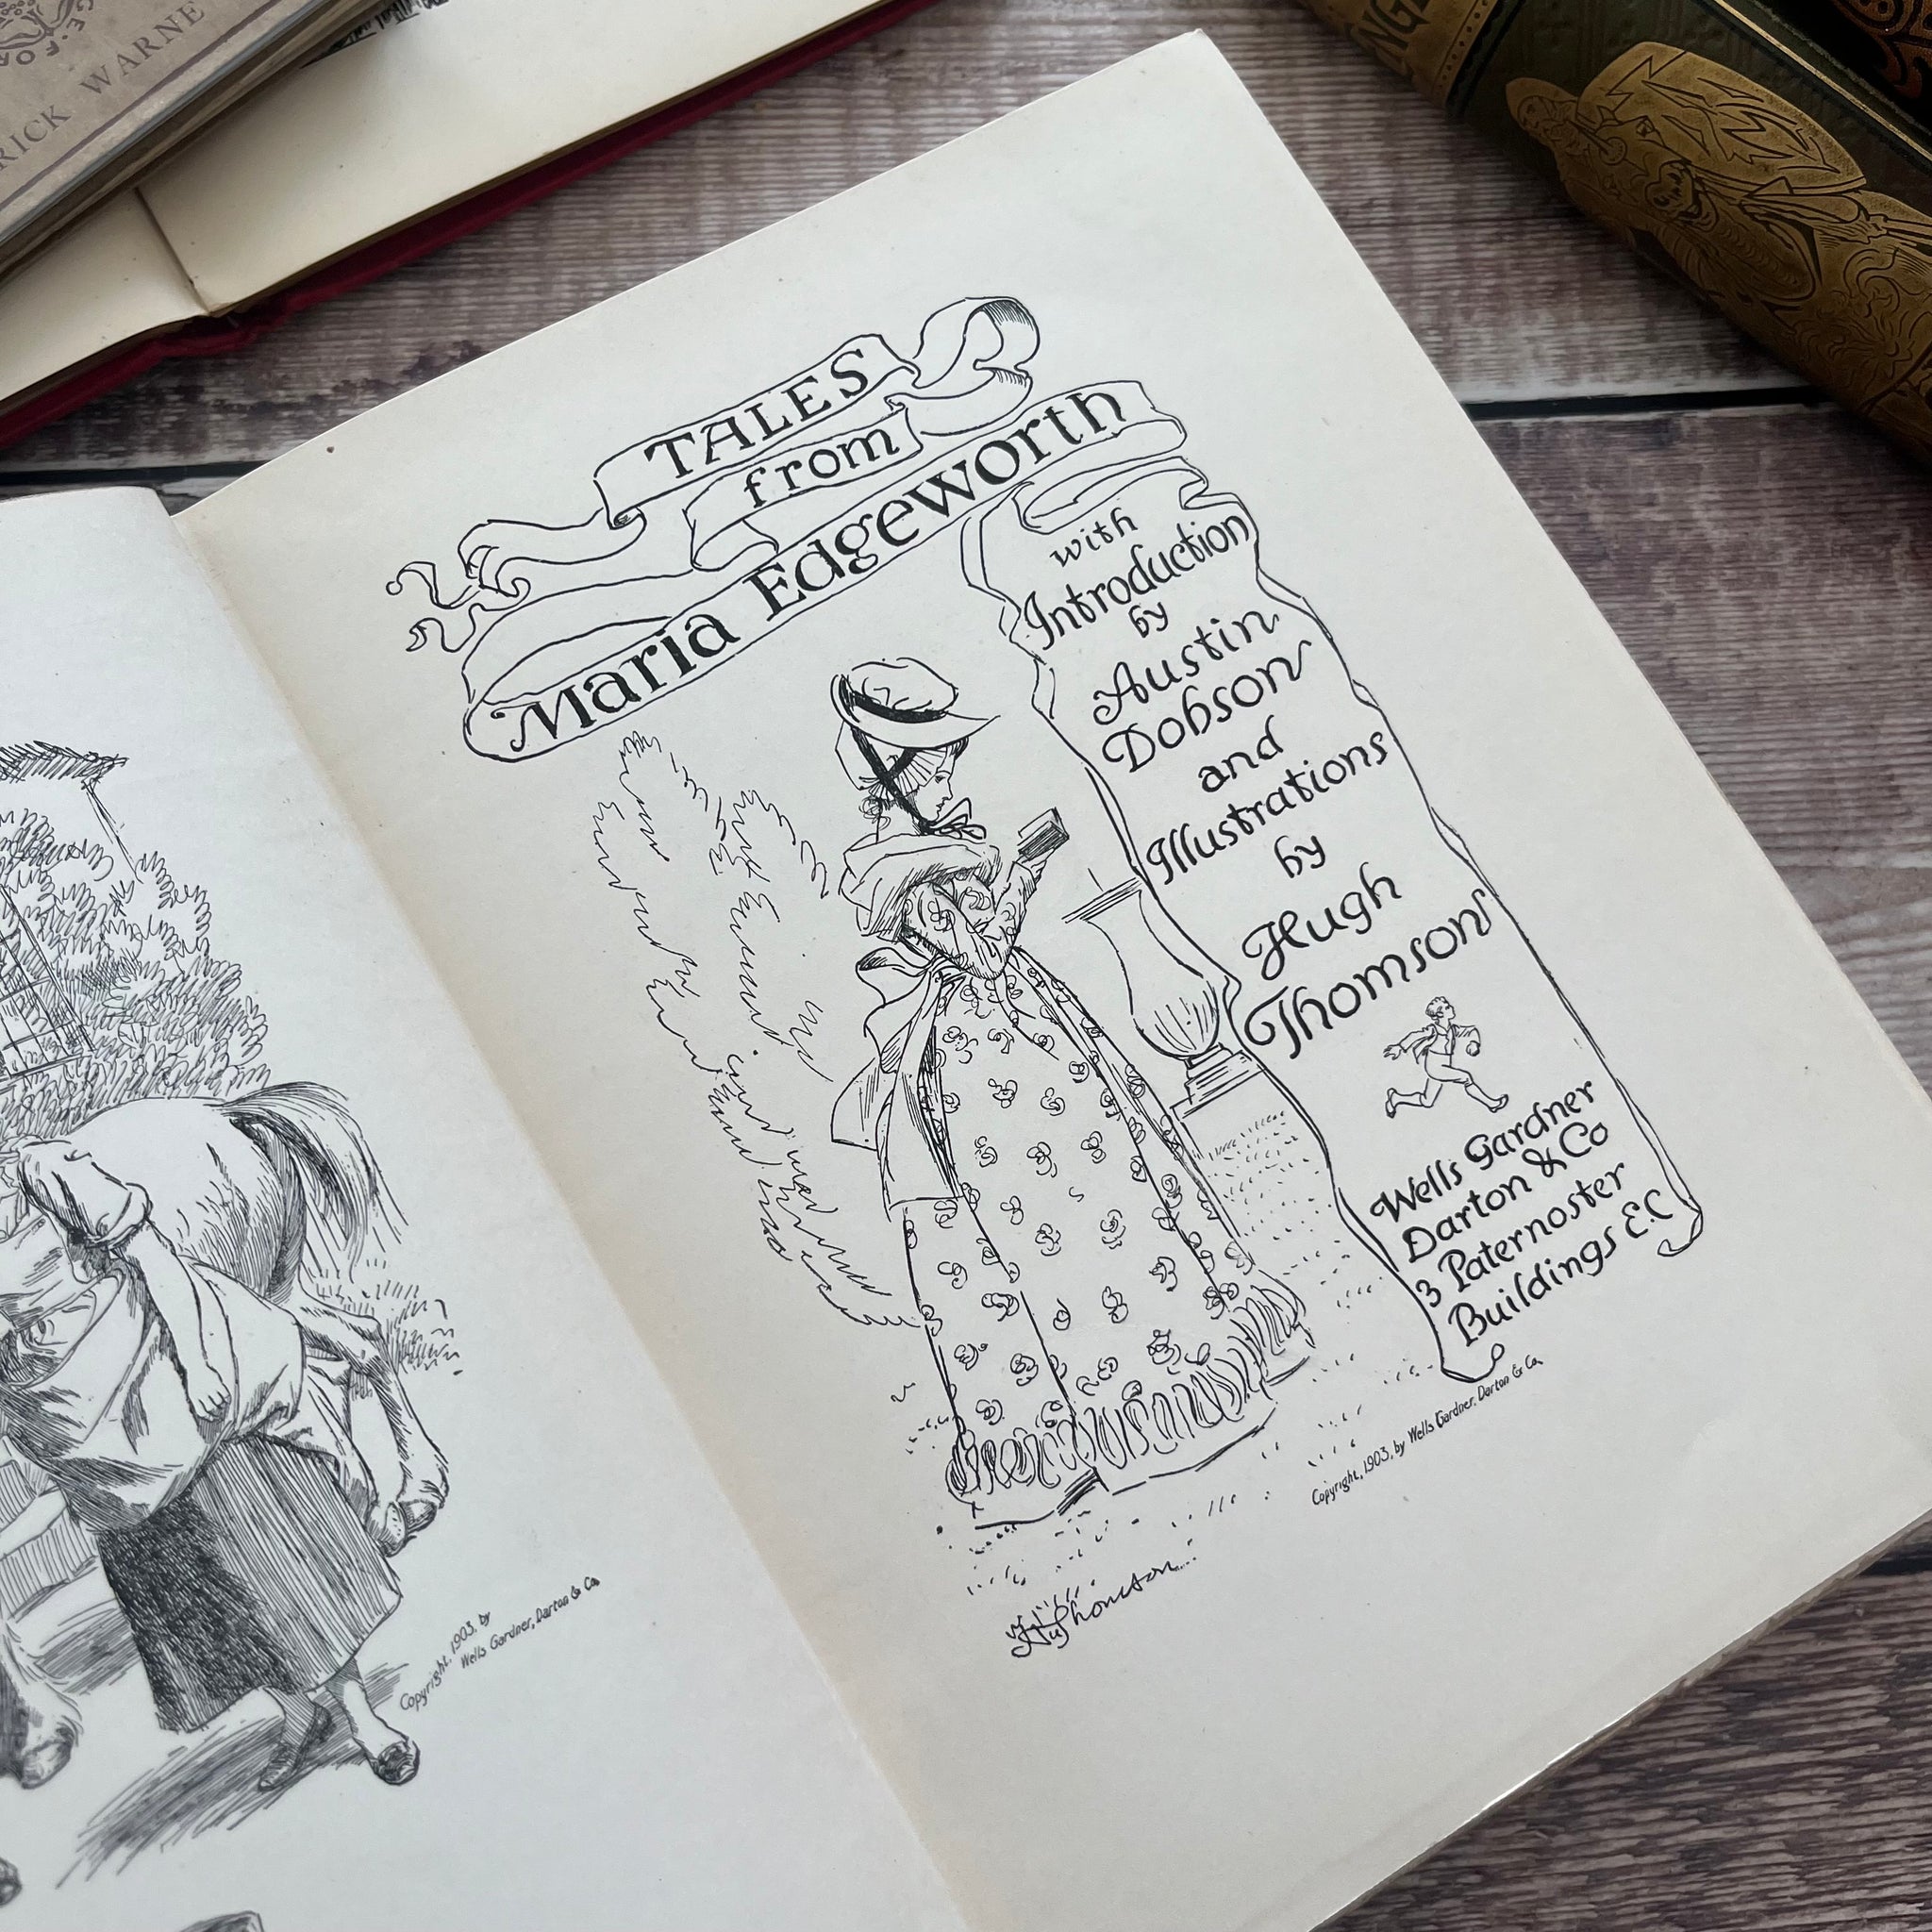 TALES
from
Maria Edgeworth
with
Introduction
by
Austin
Dobson
and
Illustrations
by
Hugh
Thomson
Wells Gardner
Darton & Co
3 Paternoster
Buildings E.C
Copyright, 1903, by Wells Gardner, Darton & Co.
Hugh Thomson
Copyright, 1903, by
Wells Gardner, Darton & Co.
WARNE